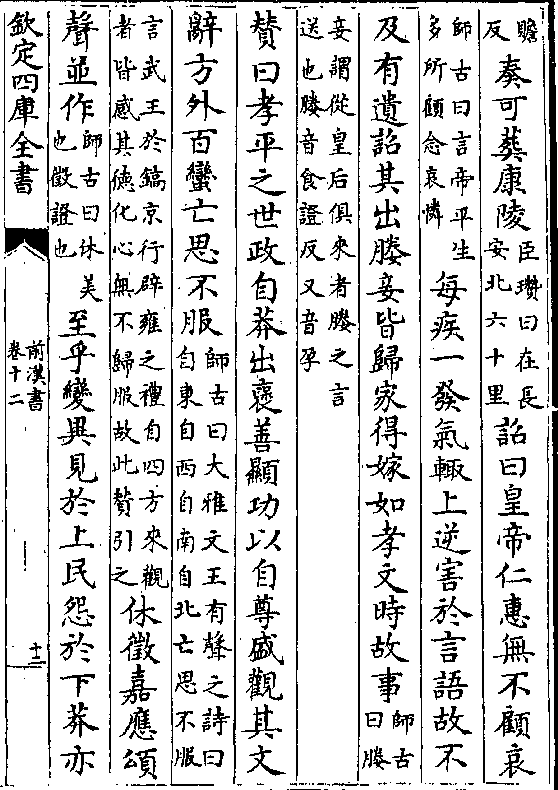 贍反奏可葬康陵臣瓚曰在長安北六十里詔曰皇帝仁惠無不顧哀
師古曰言帝平生多所顧念哀憐每疾一發氣輙上逆害於言語故不
及有遺詔其出媵妾皆歸家得嫁如孝文時故事師古曰媵
妾謂從皇后俱來者媵之言送也媵音食證反又音孕
賛曰孝平之世政自莽出襃善顯功以自尊盛觀其文
辭方外百蠻亡思不服師古曰大雅文王有聲之詩曰自東自西自南自北亡思不服
言武王於鎬京行辟雍之禮自四方來觀者皆感其德化心無不歸服故此賛引之休徵嘉應頌
聲並作師古曰休美也徵證也至乎變異見於上民怨於下莽亦
欽定四庫全書
前漢書
卷十二
十二